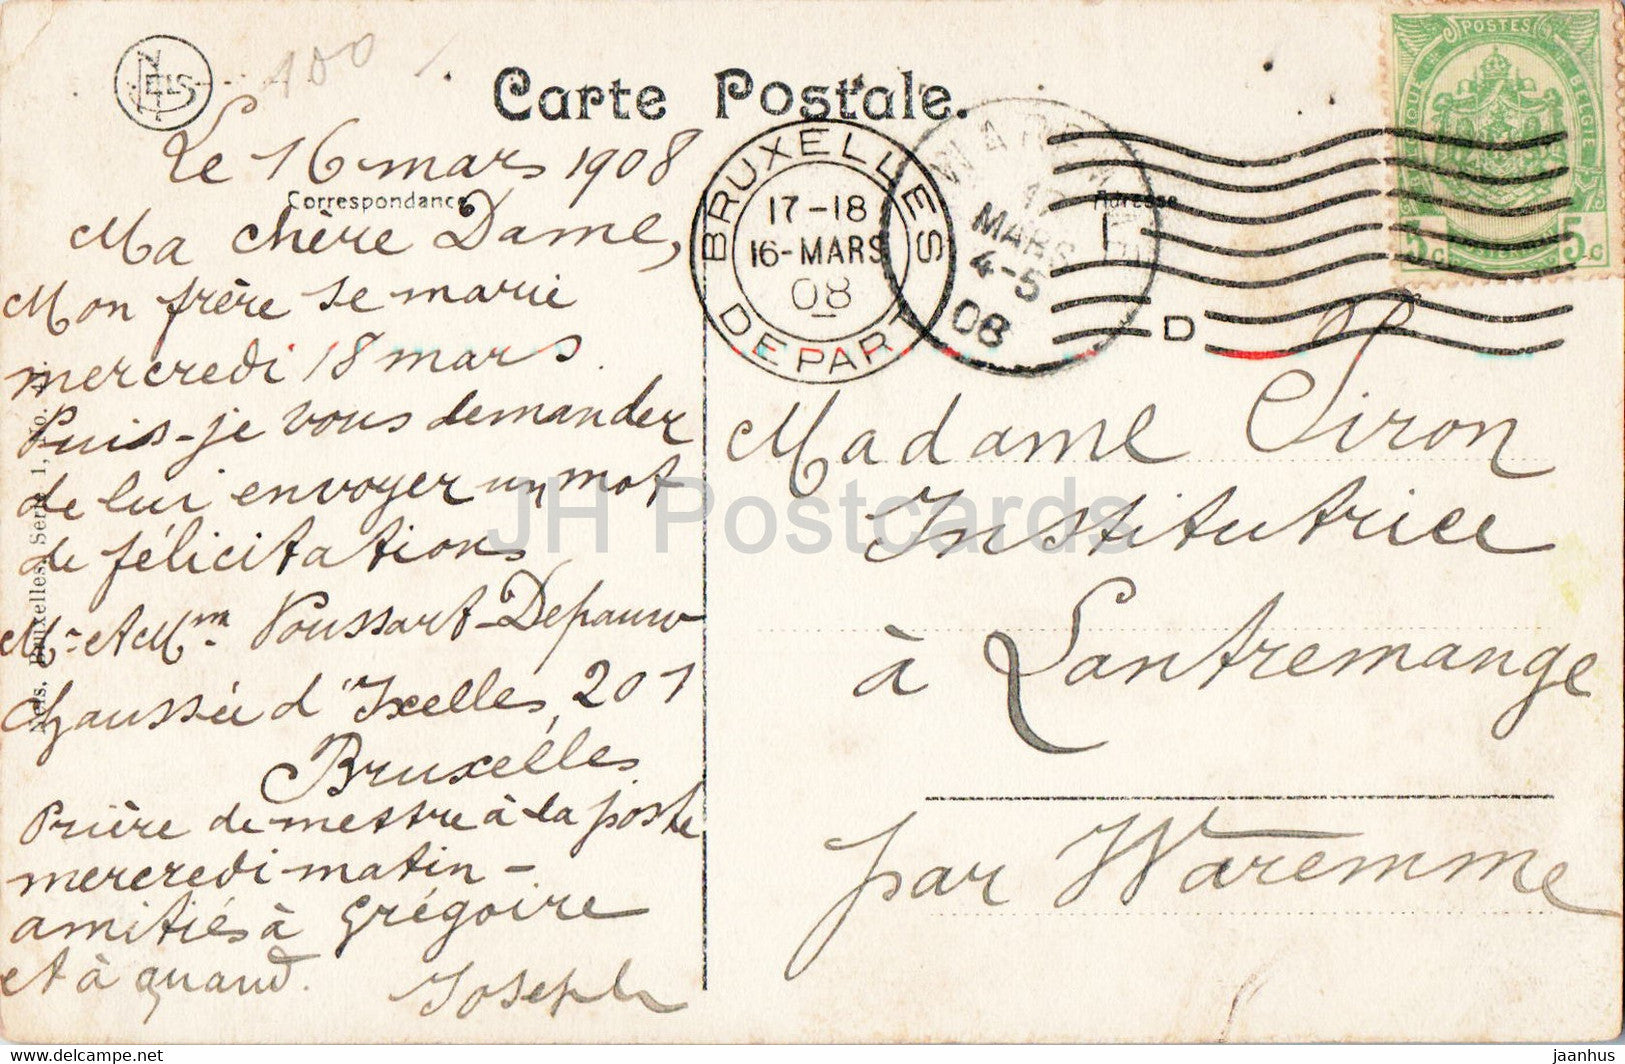 NELS
100
Carte Postale.
Correspondance
Adresse
Le 16 mars 1908
Ma chère Dame,
Mon frère se marie
mercredi 18 mars.
Puis-je vous demander
de lui envoyer un mot
de félicitations
Mr et Mme Poussart-Depauw
Chaussée d'Ixelles, 201
Bruxelles
Prière de mettre à la poste
mercredi matin -
amitiés à Grégoire
et à quand. Joseph
Nels, Bruxelles, Serie 1, No.
BRUXELLES
17-18
16-MARS
08
DEPART
17
MARS
4-5
08
D
POSTES
BELGIQUE BELGIE
5 c 5 c
Madame Siron
Institutrice
à Lantremange
par Waremme
JH Postcards
https://www.delcampe.net
jaanhus